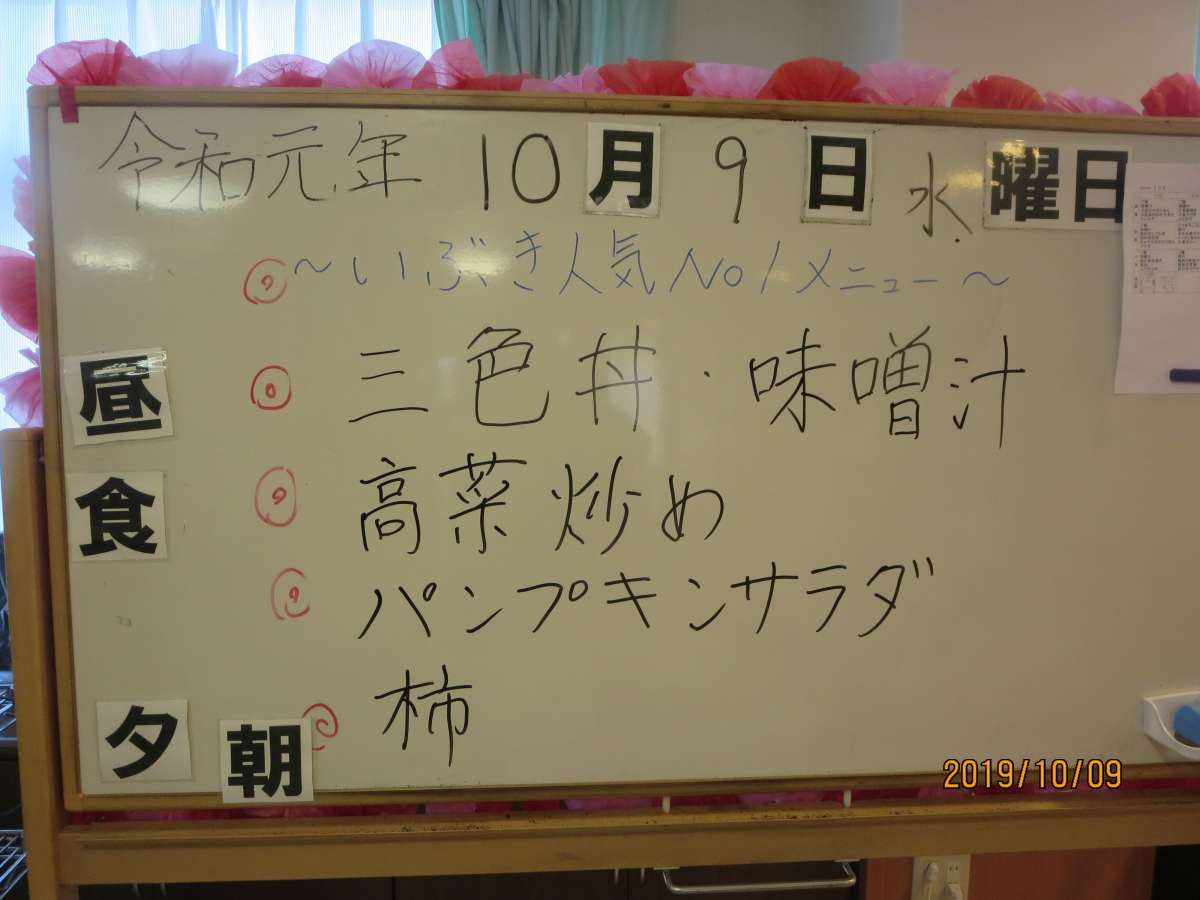 令和元年 10月9日 水曜日
～いぶき人気No1メニュー～
昼食
三色丼・味噌汁
高菜炒め
パンプキンサラダ
柿
夕
朝
2019/10/09